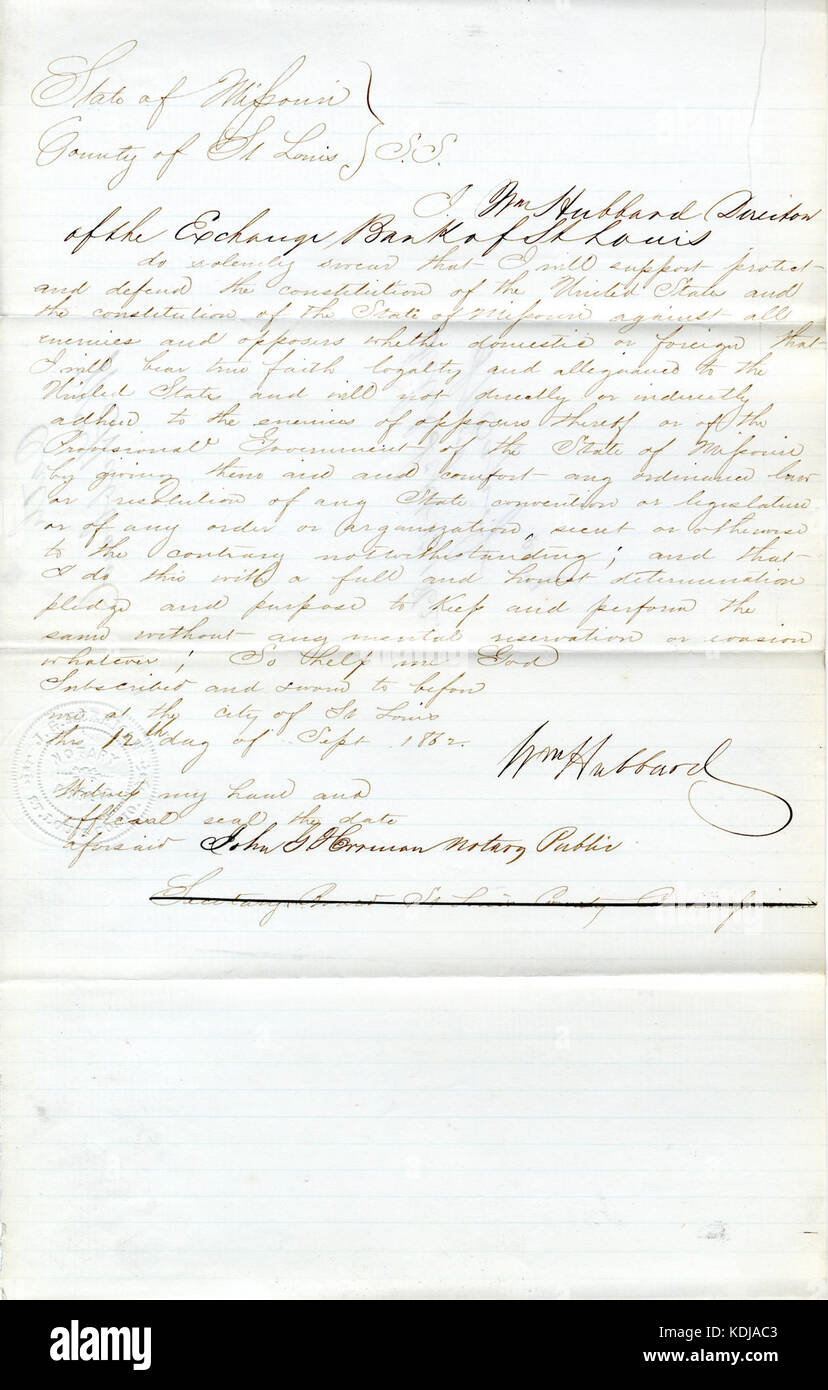 State of Missouri
County of St Louis } S.S.
I Wm Hubbard Director
of the Exchange Bank of St Louis
do solemly swear that I will support protect
and defend the constitution of the United State and
the constitution of the State of Missouri against all
enemies and opposers whether domestic or foreign that
I will bear true faith loyalty and allegiance to the
United State and will not directly or indirectly
adhere to the enemies of opposers thereof or of the
Provisional Government of the State of Missouri
by giving them aid and comfort any ordinance law
or resolution of any State convention or legislature
or of any order or organization, secret or otherwise
to the contrary notwithstanding; and that
I do this with a full and honest determination
pledge and purpose to keep and perform the
same without any mental reservation or evasion
whatever; So help me God
Subscribed and sworn to before
me at the city of St Louis
this 12th day of Sept 1862.
Wm Hubbard
Witness my hand and
official seal the date
aforsaid John G Horman Notary Public
Secretary Board St Louis County
NOTARY
alamy
a
Image ID: KDJAC3
www.alamy.com